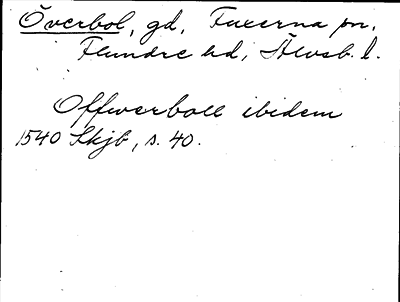 Överbol, gd, Fuxerna sn,
Flundre hd, Älvsb. l.
Offwerboll ibidem
1540 Skjb, s. 40.